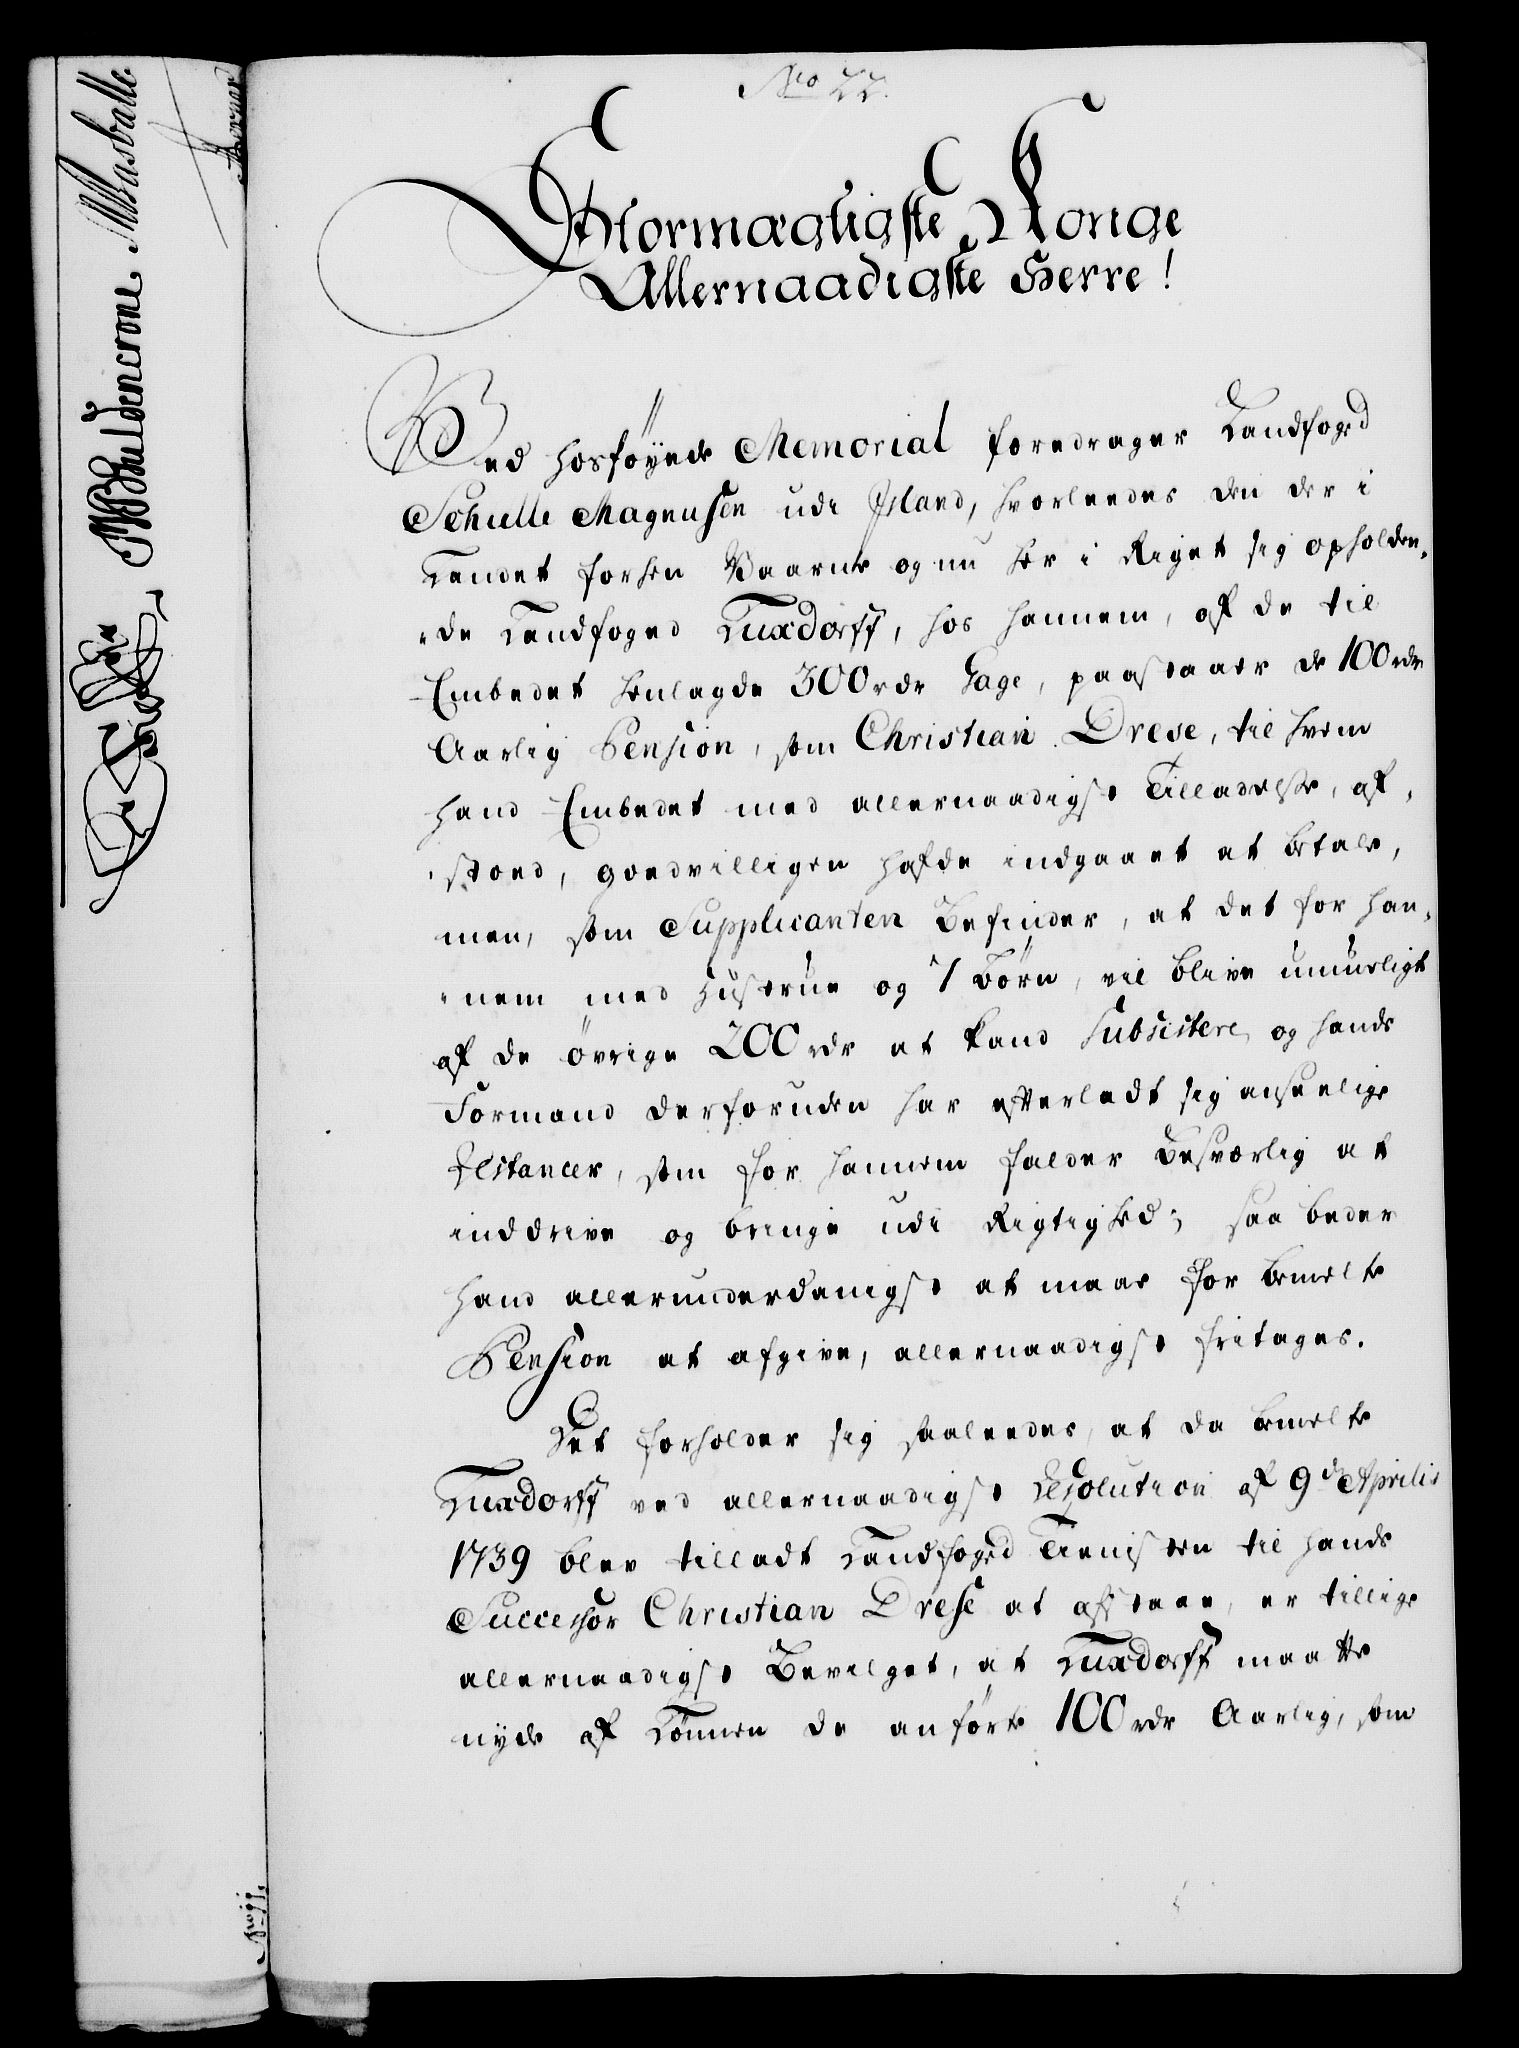 No 22.
Stormægtigste Konge
Allernaadigste Herre!
Ved hosføyede Memorial foredrager Landfoged
Schulle Magnusen udi Jsland, hvorleedes den der i
Landet forhen Vaarne og nu her i Riget sig opholden-
-de Landfoged Luxdorff, hos hannem, af de til
Embedet henlagde 300 rdr Gage, paastaaer de 100 rdr
Aarlig Pension, som Christian Drese, til hvem
hand Embedet med allernaadigst Tilladelse, af-
-stoed, goedvilligen hafde indgaaet at betale,
men, som Supplicanten befinder, at det for han-
-nem med Hustrue og 7 Børn, vil blive umueligt
af de øvrige 200 rdr at kand Subsistere, og hands
Formand derforuden har efterladt sig anseelige
Restancer, som for hannem falder besværlig at
inddrive og bringe udi Rigtighed; saa beder
hand allerunderdanigst at maae for bemelte
Pension at afgive, allernaadigst fritages.
Det forholder sig saaleedes, at da bemelte
Luxdorff ved allernaadigst Resolution af 9de Aprilis
1739 blev tilladt Landfoged Tienisten til hands
Successor Christian Drese at afstaae, er tillige
allernaadigst Bevilget, at Luxdorff maatte
nyde af Lønnen de anførte 100 rdr Aarlig, som